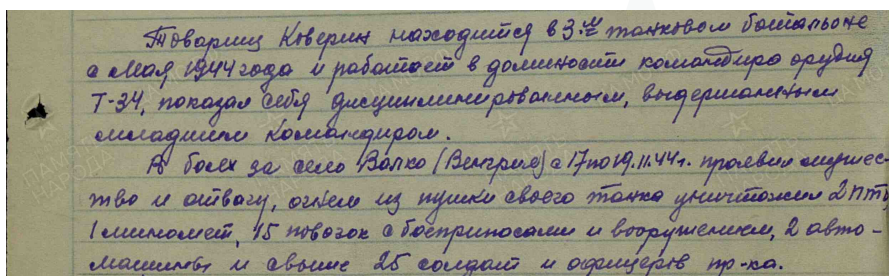 Товарищ Коверин находится в 3-м танковом батальоне
с мая 1944 года и работает в должности командира орудия
Т-34, показал себя дисциплинированным, выдержанным
младшим командиром.
В боях за село Валко (Венгрия) с 17 по 19.11.44 г. проявил мужес-
тво и отвагу, огнем из пушки своего танка уничтожил 2 ПТО,
1 миномет, 15 повозок с боеприпасами и вооружением, 2 авто-
машины и свыше 25 солдат и офицеров пр-ка.
ПАМЯТЬ НАРОДА